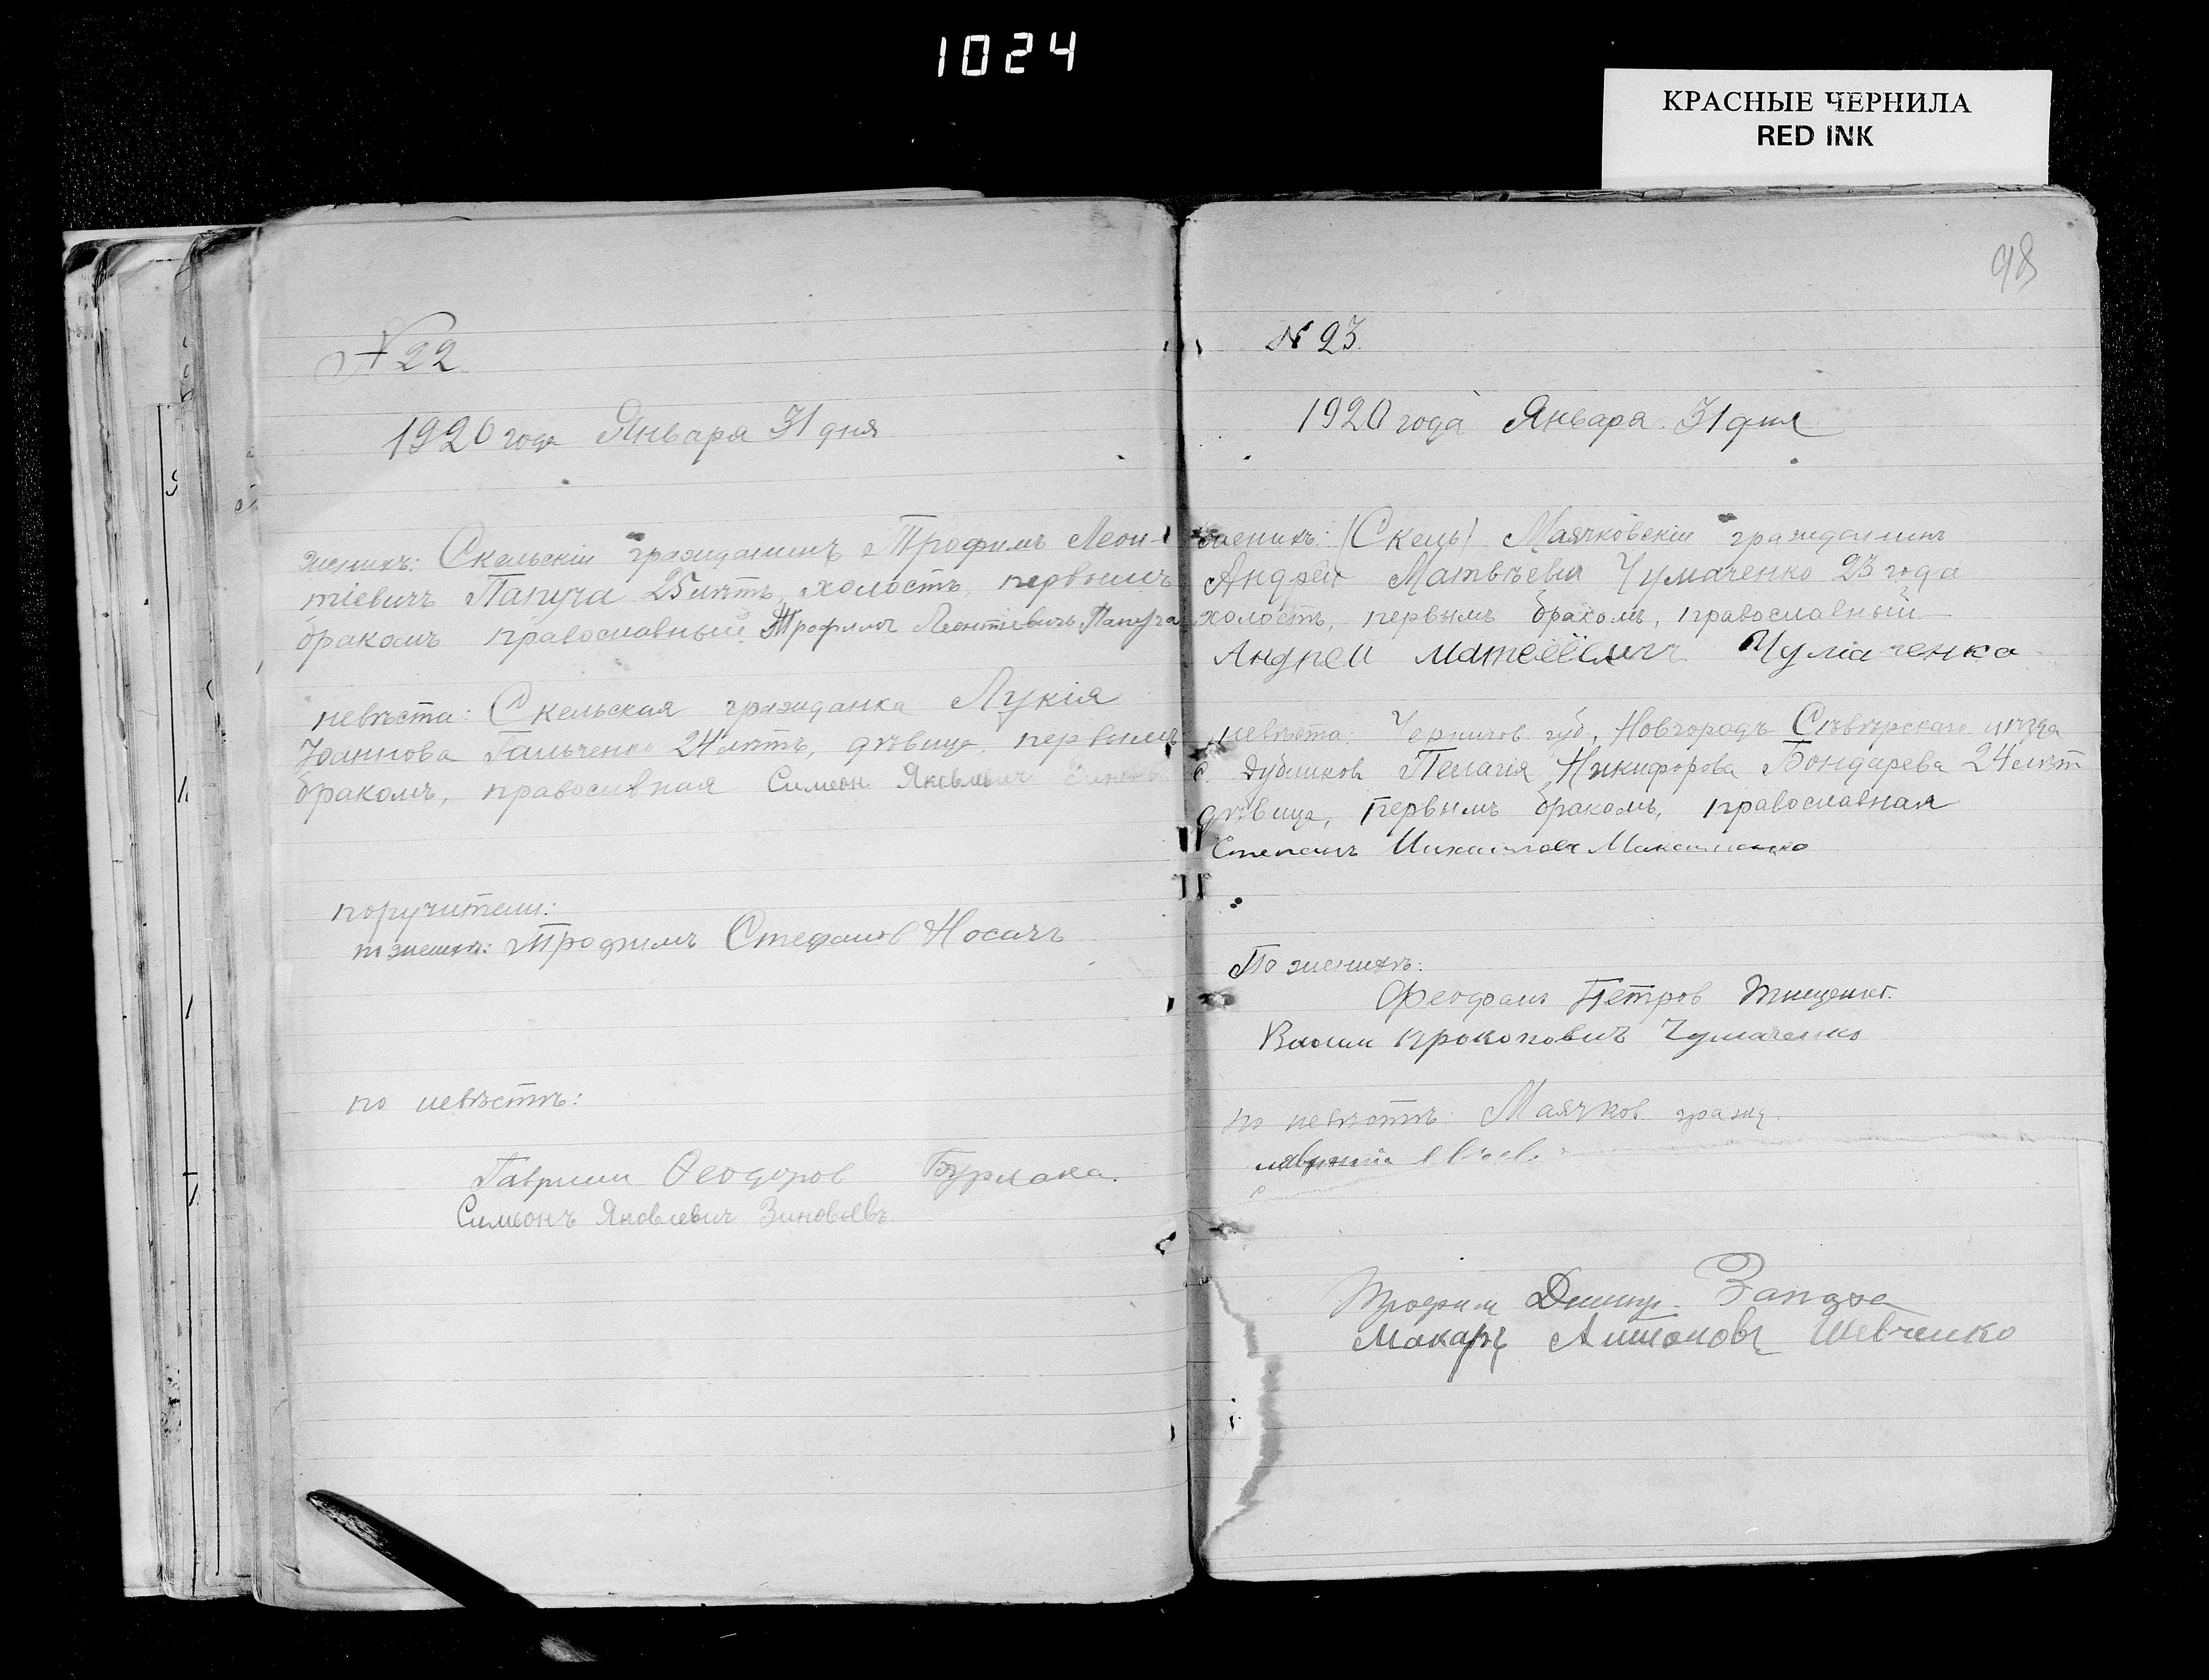 1024
КРАСНЫЕ ЧЕРНИЛА
RED INK
№ 22
1920 года Января 31 дня
женихъ: Скельскій гражданинъ Трофимъ Леон-
тіевичъ Папуча 25 лѣтъ, холостъ, первымъ
бракомъ православный Трофимъ Леонтіевичъ Папуча
невѣста: Скельская гражданка Лукія
Іоаннова Гальченко 24 лѣтъ, дѣвица, первымъ
бракомъ, православная Симеон Яковлевич
поручители:
по женихѣ: Трофимъ Стефанов Носачъ
по невѣстѣ:
Гавриил Ѳеодоров Бурлака.
Симеонъ Яковлевич Зиновьевъ
98
№ 23.
1920 года Января 31 дня
женихъ: (Скель) Маячковскій гражданинъ
Андрей Матвѣевич Чумаченко 23 года
холостъ, первымъ бракомъ, православный
Андреи Чумаченка
невѣста: Чернигов. губ., Новгородъ Сѣвѣрскаго уѣзда
с. Пелагія Никифорова Бондарева 24 лѣт
дѣвица, первымъ бракомъ, православная
Степанъ
По женихѣ:
Феофан Петров Тищенко.
Прокоповичъ Чумаченко
по невѣстѣ: Маячков. гражд.
Трофим Дмитр.
Макаръ Антоновъ Шевченко